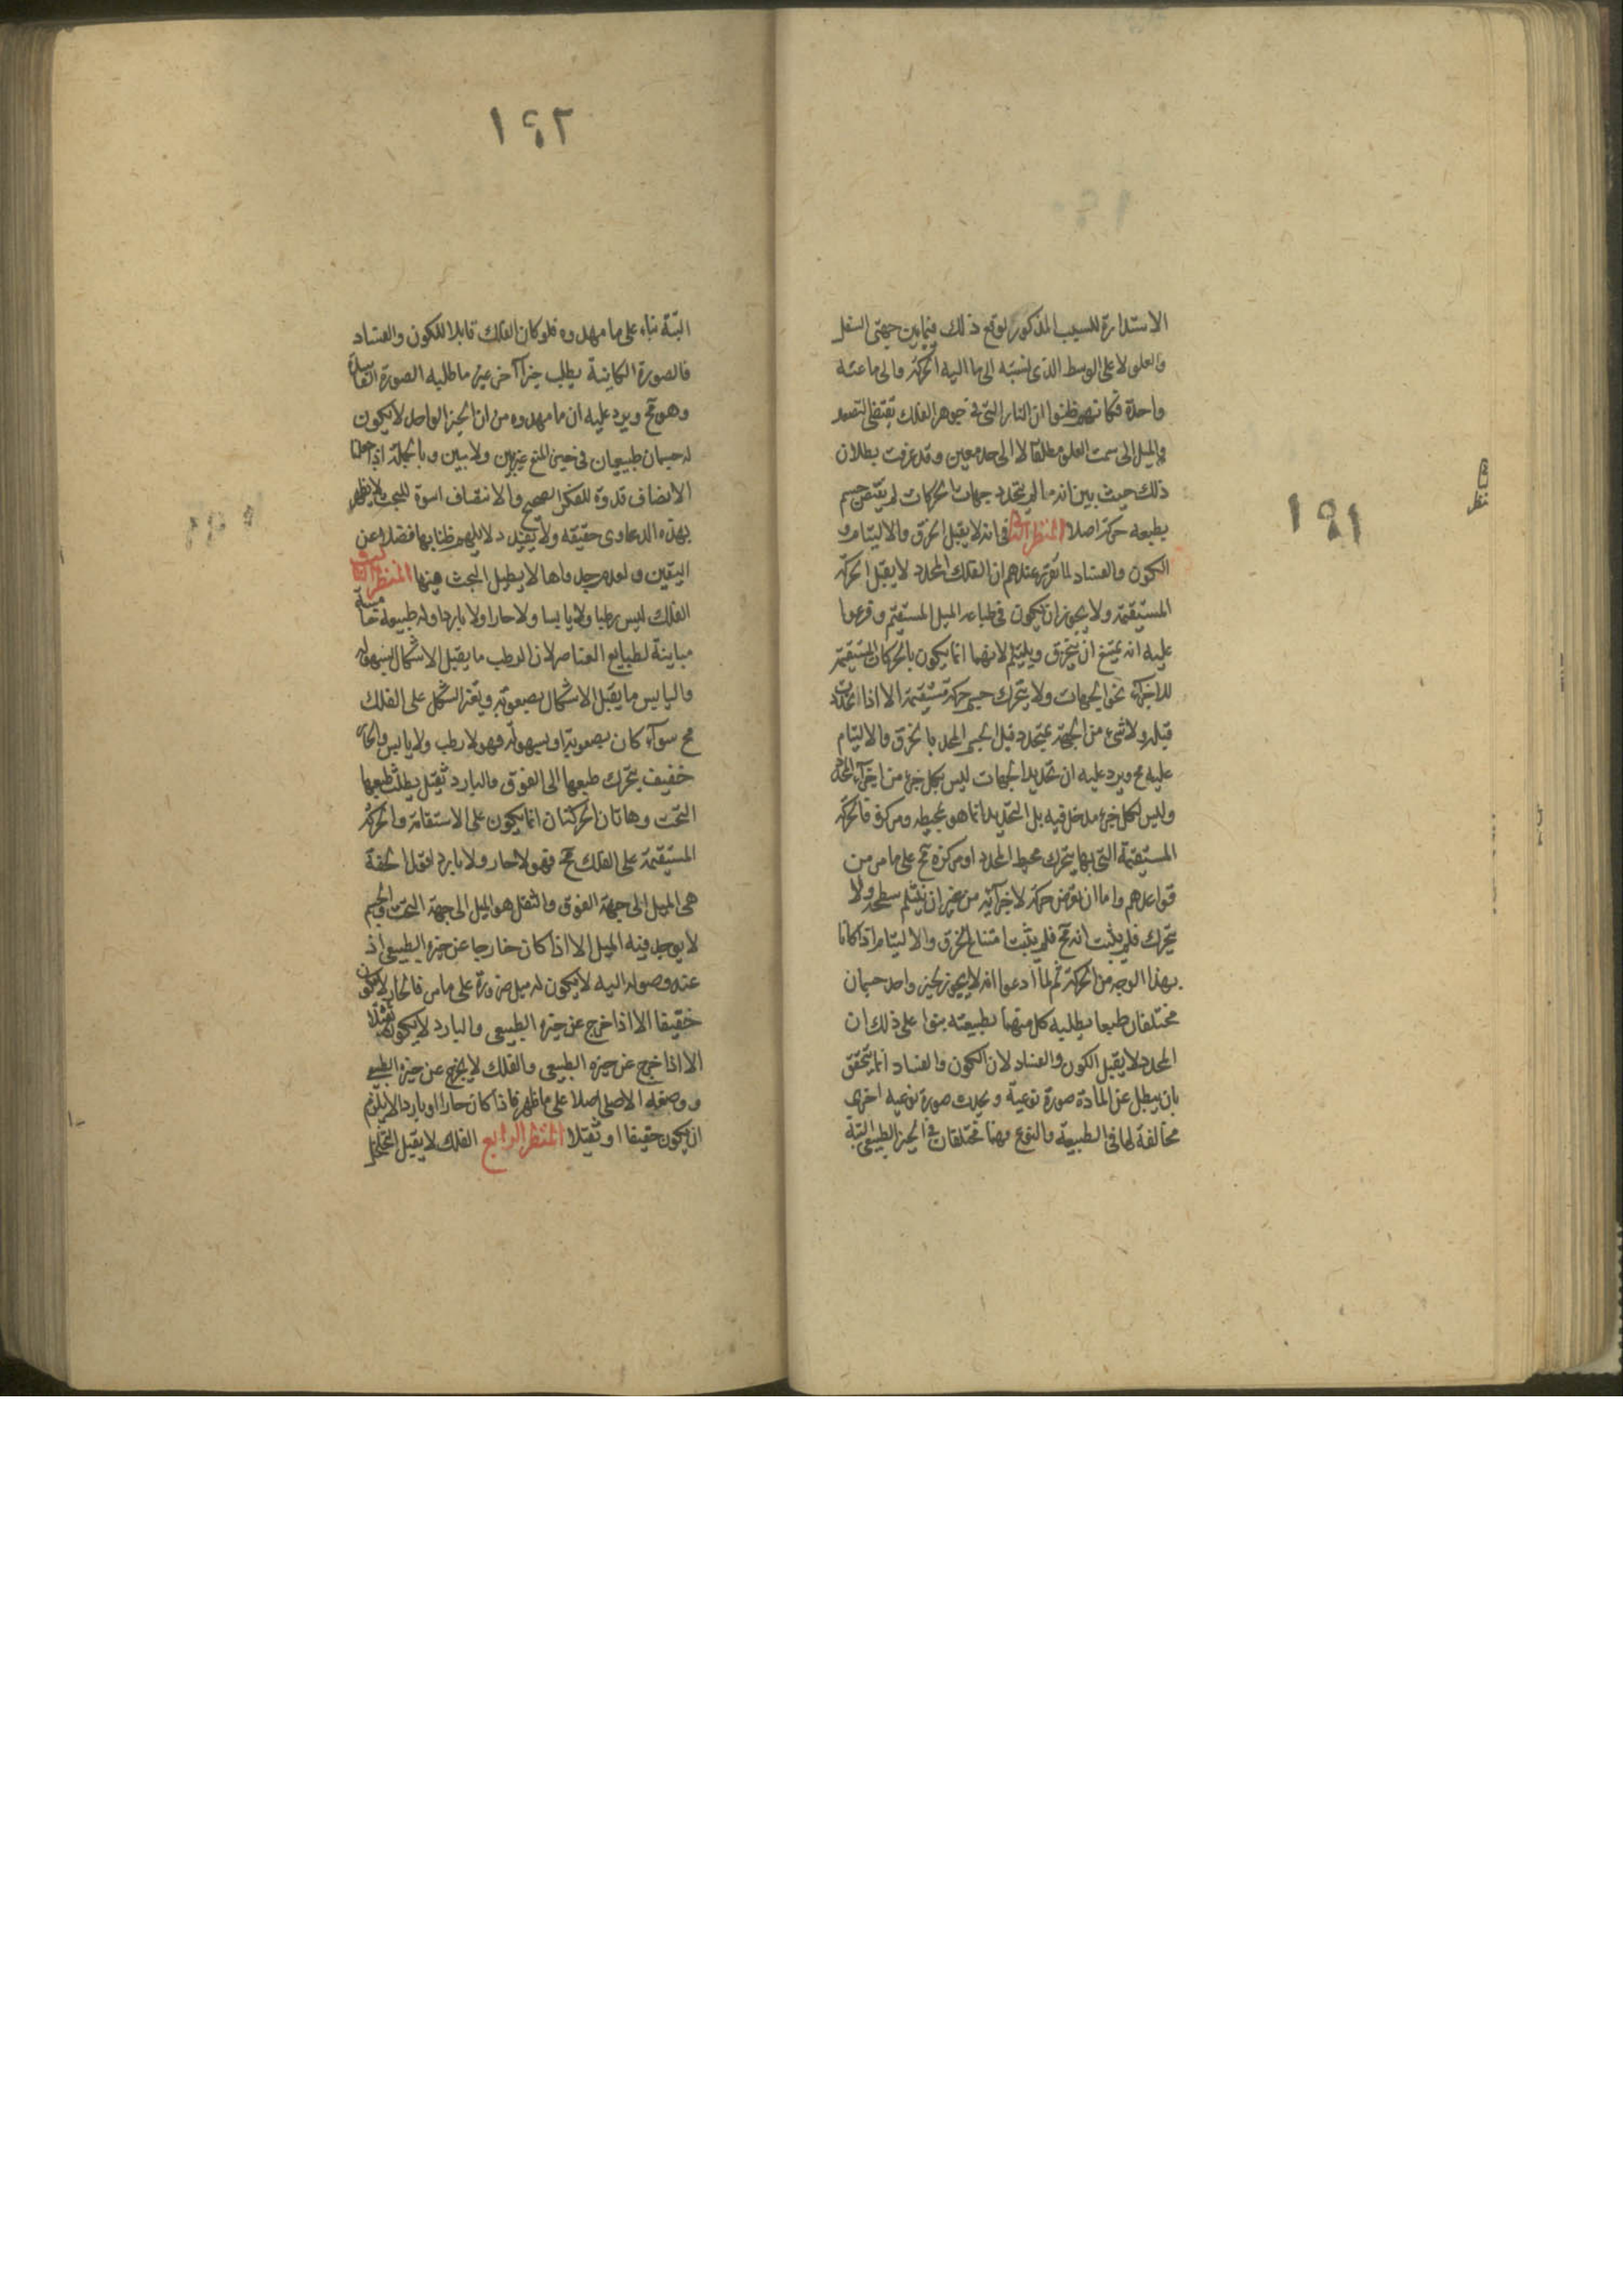 ١٩١
الاستدارة للسبب المذكور لوقع ذلك فيما بين جهتى السفل
والعلو لا على الوسط الذى نسبته الى ما اليه الحركة والى ما عنه
واحدة فكانهم ظنوا ان النار التى فى جوهر الفلك تقتضى التصعد
والميل الى سمت العلو مطلقا لا الى حد معين وقد عرفت بطلان
ذلك حيث بين انه ما لم يتحدد جهات الحركات لم يقتض جسم
بطبعه حركة اصلا المنظر الثانى فى انه لا يقبل الخرق والالتيام و
الكون والفساد لما تقرر عندهم ان الفلك المحدد لا يقبل الحركة
المستقيمة ولا يجوز ان يكون فى طباعه الميل المستقيم وفرعوا
عليه انه يمتنع ان ينخرق ويلتئم لانهما انما يكون بالحركات المستقيمة
للاجزاء نحو الجهات ولا يتحرك جسم حركة مستقيمة الا اذا تحددت
قبله ولا شىء من الجهة يتحدد قبل الجسم المحدد بالخرق والالتيام
عليه مح ويرد عليه ان تحديد الجهات ليس بكل جزء من اجزاء المحدد
وليس لكل جزء مدخل فيه بل التحديد انما هو بمحيطه ومركزه فالحركة
المستقيمة التى بها يتحرك محيط المحدد او مركزه مح على ما مر من
قواعدهم واما ان تعرض حركة لاجزائه من غير ان ينثلم سطحه ولا
يتحرك فلم يثبت انه مح فلم يثبت امتناع الخرق والالتيام اذا كانا
بهذا الوجه من الحركة ثم لما ادعوا انه لا يجوز لحيز واحد جسمان
مختلفان طبعا يطلبه كل منهما بطبيعته بنوا على ذلك ان
المحدد لا يقبل الكون والفساد لان الكون والفساد انما يتحقق
بان يبطل عن المادة صورة نوعية ويحدث صورة نوعية اخرى
مخالفة لها فى الطبيعة والنوع وهما مختلفان فى الحيز الطبيعى البتة
١٩٢
البتة بناء على ما مهدوه فلو كان الفلك قابلا للكون والفساد
فالصورة الكاينة يطلب حيزا آخر غير ما طلبه الصورة الفاسدة
وهو مح ويرد عليه ان ما مهدوه من ان الحيز الواحد لا يكون
له جسمان طبيعيان فى حيز المنع غير بين ولا مبين وبالجملة اذا جعلنا
الانصاف قدوة للفكر الصحيح والانتصاف اسوة للبحث لا يظهر
بهذه الدعاوى حقيقه ولا يفيد دلايلهم ظنا بها فضلا عن
اليقين ولعدم جدواها لا يطيل البحث فيها المنظر الثالث
الفلك ليس رطبا ولا يابسا ولا حارا ولا باردا وله طبيعة خامسة
مباينة لطبايع العناصر لان الرطب ما يقبل الاشكال بسهولة
واليابس ما يقبل الاشكال بصعوبة وتغير الشكل على الفلك
مح سواء كان بصعوبة او بسهولة فهو لا رطب ولا يابس والحار
خفيف يتحرك طبعها الى الفوق والبارد ثقيل يطلب طبعها
التحت وهاتان الحركتان انما يكون على الاستقامة والحركة
المستقيمة على الفلك مح فهو لا حار ولا بارد اقول الخفة
هى الميل الى جهة الفوق والثقل هو الميل الى جهة التحت والجسم
لا يوجد فيه الميل الا اذا كان خارجا عن حيزه الطبيعى اذ
عند وصوله اليه لا يكون له ميل ضرورة على ما مر فالحار لا يكون
خفيفا الا اذا خرج عن حيزه الطبيعى والبارد لا يكون ثقيلا
الا اذا خرج عن حيزه الطبيعى والفلك لا يخرج عن حيزه الطبيعى
ووضعه الاصلى اصلا على ما ظهر فاذا كان حارا او باردا لا يلزم
ان يكون خفيفا او ثقيلا المنظر الرابع الفلك لا يقبل التخلخل